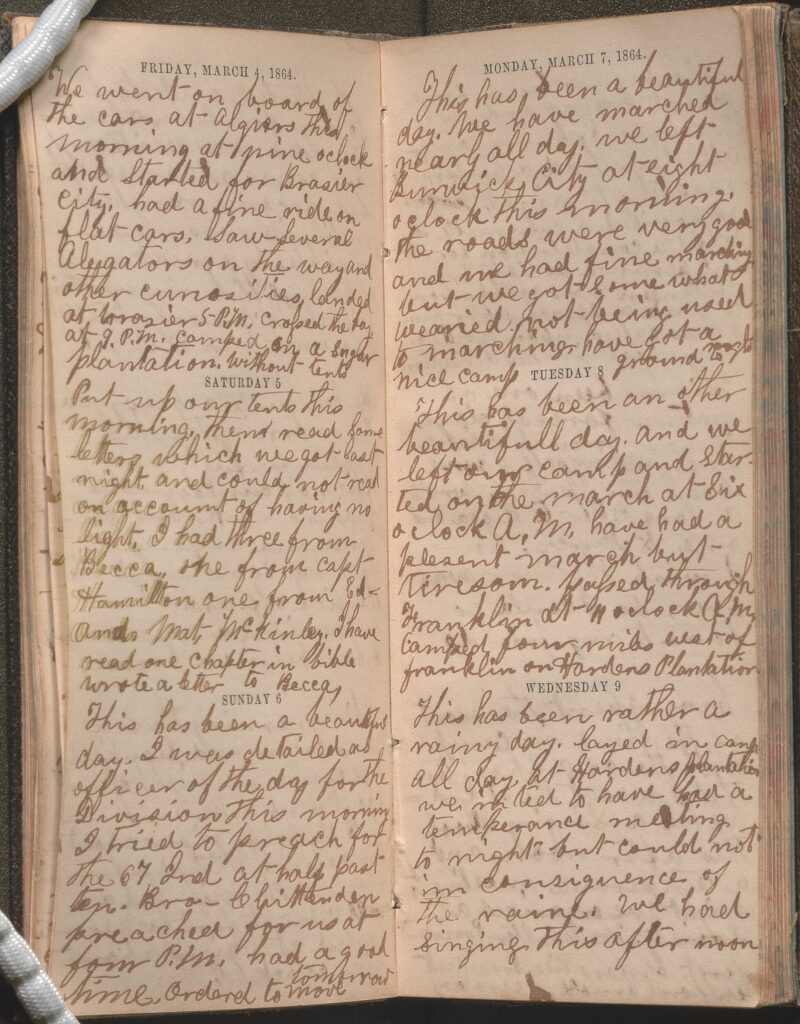 FRIDAY, MARCH 4, 1864.
We went on board of
the cars at Algiers this
morning at nine oclock
and Started for Brasier
City. had a fine ride on
flat cars. saw several
Alegators on the way and
other curiosities, landed
at Brasier 5 P.M. crossed the bay
at 9. P.M. camped on a Sugar
plantation. without tents
SATURDAY 5
Put up our tents this
morning, then read some
letters which we got last
night and could not read
on account of having no
light. I had three from
Becca, one from Capt
Hamilton one from Ed-
and Mat, McKinley. I have
read one chapter in bible
wrote a letter to Becca,
SUNDAY 6
This has been a beautiful
day. I was detailed as
officer of the day for the
Division this morning
I tried to preach for
the 67 Ind at half past
ten. Bro- Chittenden
preached for us at
four P.M. had a good
time. Ordered to move tomorrow
MONDAY, MARCH 7, 1864.
This has been a beautiful
day. We have marched
nearly all day. we left
Burwick City at eight
oclock this morning.
the roads were very good
and we had fine marching
but we got some what
wearied not being used
to marching. have got a
nice camp ground to night
TUESDAY 8
This has been an other
beautifull day. and we
left our camp and Star-
ted on the march at Six
oclock A, M, have had a
plesent march but
tiresom. passed through
Franklin at 11 oclock A.M.
Camped four miles west of
franklin on Hardens Plantation
WEDNESDAY 9
This has been rather a
rainy day. layed in camp
all day at Hardens plantation
we inted to have had a
temperance meeting
to night but could not
im consiquence of
the rain. We had
Singing this after noon